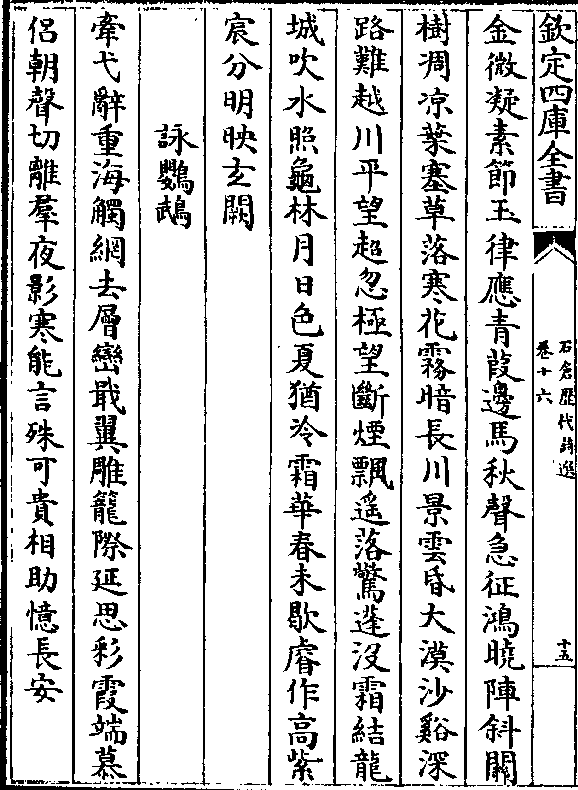 欽定四庫全書
石倉歷代詩選
卷十六
十五
金微凝素節玉律應青葭邊馬秋聲急征鴻曉陣斜關
樹凋凉葉塞草落寒花霧暗長川景雲昏大漠沙谿深
路難越川平望超忽極望斷煙飄遥落驚蓬没霜結龍
城吹水照龜林月日色夏猶冷霜華春未歇睿作高紫
宸分明映玄闕
詠鸚鵡
牽弋辭重海觸網去層巒戢翼雕籠際延思彩霞端慕
侣朝聲切離羣夜影寒能言殊可貴相助憶長安